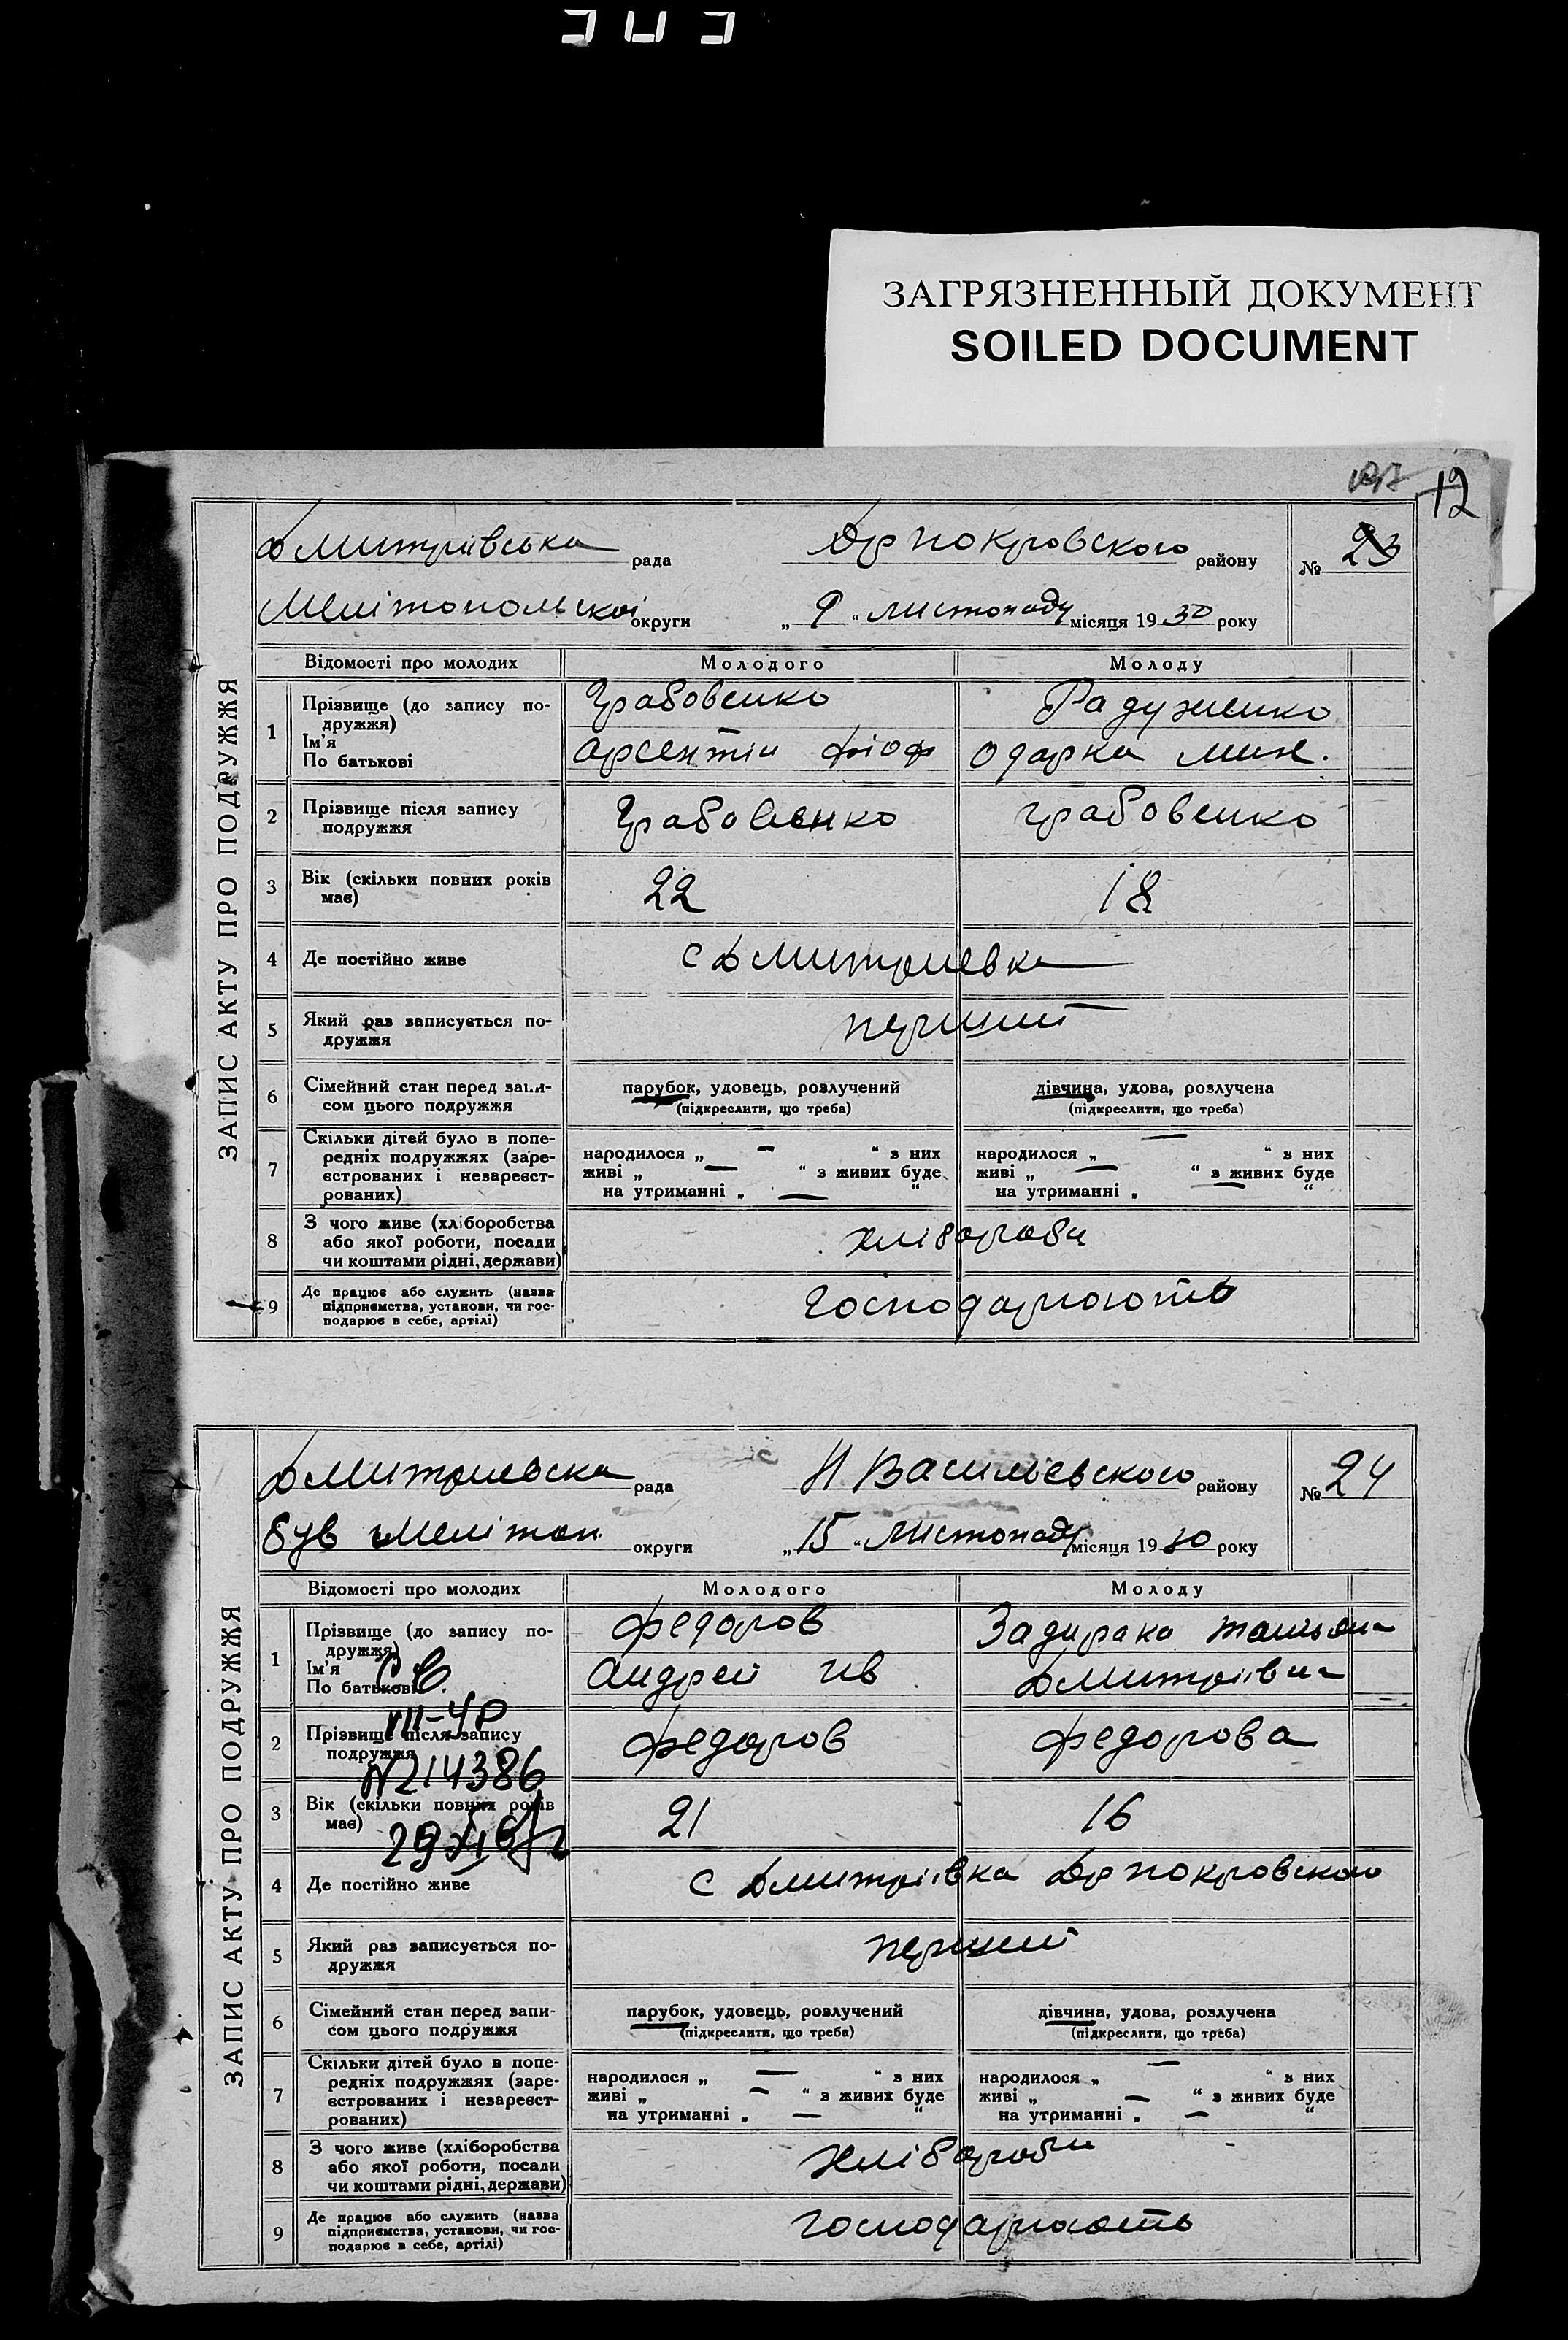 ЗАГРЯЗНЕННЫЙ ДОКУМЕНТ
SOILED DOCUMENT
12
ЗАПИС АКТУ ПРО ПОДРУЖЖЯ
Дмитрівська рада Др покровского району № 23
Мелітопольскої округи „ 9 “ листопаду місяця 19 30 року
Відомості про молодих Молодого Молоду
1 Прізвище (до запису по- Грабовенко Радуженко
дружжя)
Ім'я Арсентій Фіоф Одарка Мих.
По батькові
2 Прізвище після запису Грабовенко Грабовенко
подружжя
3 Вік (скільки повних років 22 18
має)
4 Де постійно живе с Дмитриевка
5 Який раз записується по- перший
дружжя
6 Сімейний стан перед запи- парубок, удовець, розлучений дівчина, удова, розлучена
сом цього подружжя (підкреслити, що треба) (підкреслити, що треба)
7 Скільки дітей було в попе-
редніх подружжях (заре- народилося „ — “ з них народилося „ — “ з них
єстрованих і незареєст- живі „ — “ з живих буде живі „ — “ з живих буде
рованих) на утриманні „ — “ на утриманні „ — “
8 З чого живе (хліборобства хлібороби
або якої роботи, посади
чи коштами рідні, держави)
9 Де працює або служить (назва Господарюють
підприємства, установи, чи гос-
подарює в себе, артілі)
ЗАПИС АКТУ ПРО ПОДРУЖЖЯ
Дмитриевска рада Н Васильевского району № 24
був Мелітоп округи „ 15 “ Листопаду місяця 19 30 року
Відомості про молодих Молодого Молоду
1 Прізвище (до запису по- Федоров Задирака Татьяна
дружжя)
Ім'я Андрей Ив Дмитріівна
По батькові
2 Прізвище після запису Федоров Федорова
подружжя
N214386
3 Вік (скільки повних років 21 16
має)
4 Де постійно живе с Дмитріівка Др покровского
5 Який раз записується по- перший
дружжя
6 Сімейний стан перед запи- парубок, удовець, розлучений дівчина, удова, розлучена
сом цього подружжя (підкреслити, що треба) (підкреслити, що треба)
7 Скільки дітей було в попе-
редніх подружжях (заре- народилося „ — “ з них народилося „ — “ з них
єстрованих і незареєст- живі „ — “ з живих буде живі „ — “ з живих буде
рованих) на утриманні „ — “ на утриманні „ — “
8 З чого живе (хліборобства хлібороби
або якої роботи, посади
чи коштами рідні, держави)
9 Де працює або служить (назва Господарюють
підприємства, установи, чи гос-
подарює в себе, артілі)